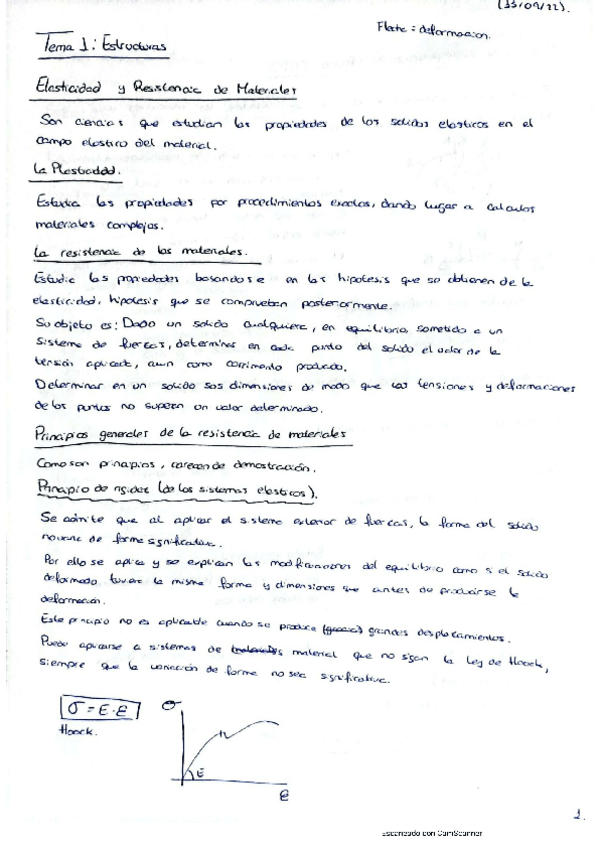 (13/09/22).
Flecha = deformacion.
Tema 1: Estructuras
Elasticidad y Resistencia de Materiales
Son ciencias que estudian las propiedades de los solidos elasticos en el
campo elastico del material.
La Plasticidad.
Estudia las propiedades por procedimientos exactos, dando lugar a calculos
materiales complejos.
La resistencia de los materiales.
Estudia las propiedades basandose en las hipotesis que se obtienen de la
elasticidad, hipotesis que se comprueban posteriormente.
Su objeto es: Dado un solido cualquiera, en equilibrio, sometido a un
sistema de fuerzas, determinar en cada punto del solido el valor de la
tensión aplicada, asi como corrimiento producido.
Determinar en un solido sus dimensiones de modo que las tensiones y deformaciones
de los puntos no superen un valor determinado.
Principios generales de la resistencia de materiales
Como son principios, carecen de demostración.
Principio de rigidez (de los sistemas elasticos).
Se admite que al aplicar el sistema exterior de fuerzas, la forma del solido
no varie de forma significativa.
Por ello se aplica y se explican las modificaciones del equilibrio como si el solido
deformado tuviera la misma forma y dimensiones que antes de producirse la
deformación.
Este principio no es aplicable cuando se produce grandes desplazamientos.
Puede aplicarse a sistemas de material que no sigan la Ley de Hoock,
siempre que la variación de forma no sea significativa.
σ = E·e
Hoock.
σ
E
e
1.
Escaneado con CamScanner